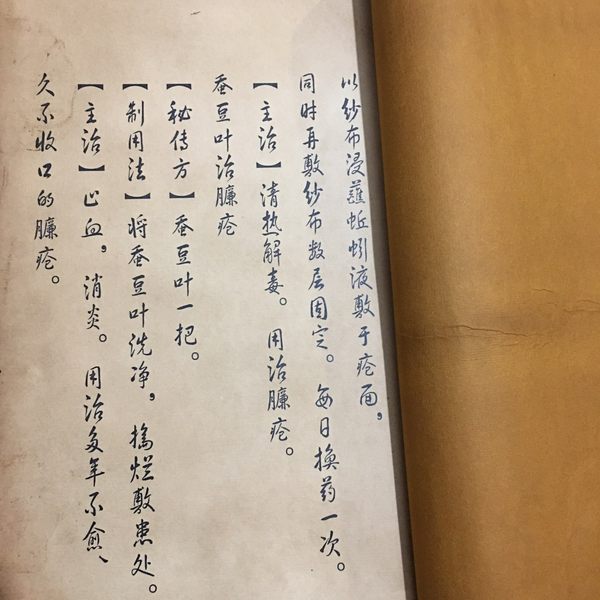 以纱布浸蘸蚯蚓液敷于疮面，
同时再敷纱布数层固定。每日换药一次。
【主治】清热解毒。用治臁疮。
蚕豆叶治臁疮
【秘传方】蚕豆叶一把。
【制用法】将蚕豆叶洗净，捣烂敷患处。
【主治】止血，消炎。用治多年不愈、
久不收口的臁疮。